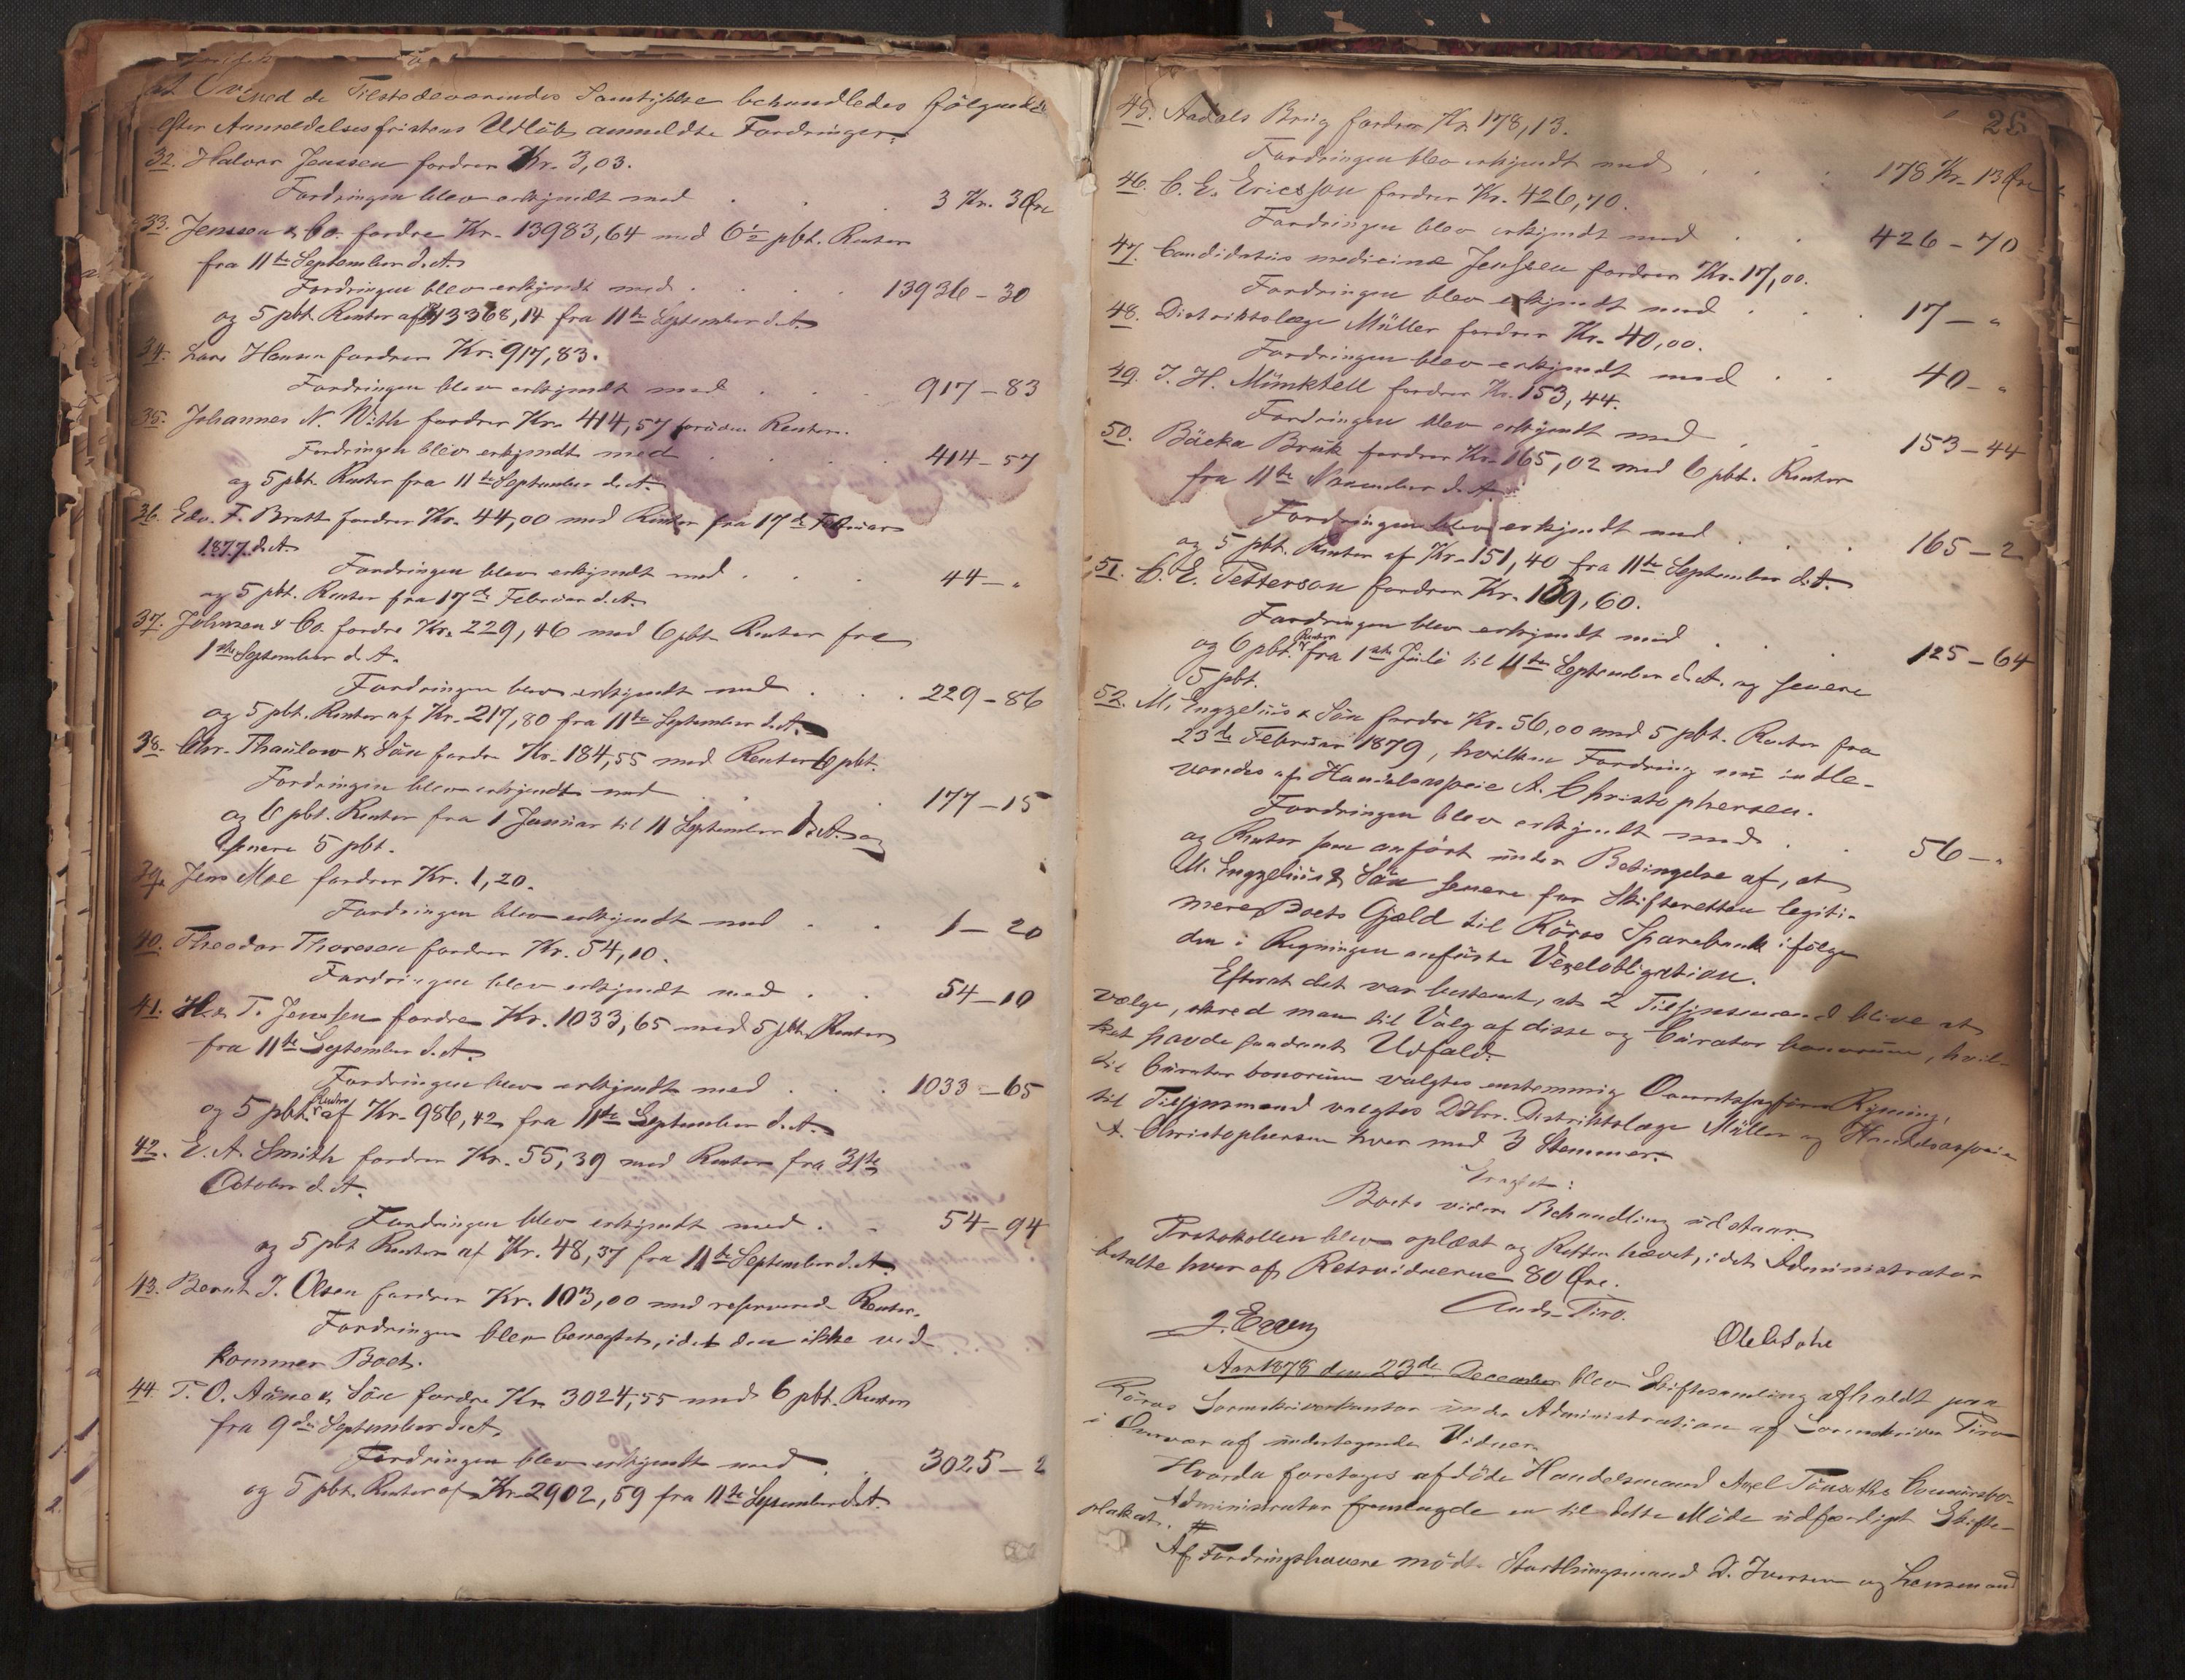 med de Tilstedeværendes Samtykke behandledes følgende
efter Anmeldelsesfristens Udløb anmeldte Fordringer:
32. Halvor Jenssen fordrer Kr. 3,03.
Fordringen blev erkjendt med . . . 3 Kr. 3 Øre
33. Jenssen & Co. fordre Kr. 13983,64 med 6½ pCt. Renter
fra 11te September d. A.
Fordringen blev erkjendt med . . . . 13936 - 30
og 5 pCt. Renter af 13368,14 fra 11te September d. A.
34. Lars Hansen fordrer Kr. 917,83.
Fordringen blev erkjendt med . . . 917 - 83
35. Johannes N. With fordrer Kr. 414,57 foruden Renter.
Fordringen blev erkjendt med . . . . 414 - 57
og 5 pCt. Renter fra 11te September d. A.
36. Edv. F. Bratt fordrer Kr. 44,00 med Renter fra 17de Februar
1877 d. A.
Fordringen blev erkjendt med . . . 44 - "
og 5 pCt. Renter fra 17de Februar d. A.
37. Johnsen & Co. fordre Kr. 229,46 med 6 pCt. Renter fra
1ste September d. A.
Fordringen blev erkjendt med . . . . 229 - 86
og 5 pCt. Renter af Kr. 217,80 fra 11te September d. A.
38. Chr. Thaulow & Søn fordre Kr. 184,55 med Renter 6 pCt.
Fordringen blev erkjendt med . . . 177 - 15
og 6 pCt. Renter fra 1 Januar til 11 September d. A. og
senere 5 pCt.
39. Jens Moe fordrer Kr. 1,20.
Fordringen blev erkjendt med . . 1 - 20
40. Theodor Thoresen fordrer Kr. 54,10.
Fordringen blev erkjendt med . . 54 - 10
41. H. & T. Jenssen fordre Kr. 1033,65 med 5 pCt. Renter
fra 11te September d. A.
Fordringen blev erkjendt med . . . 1033 - 65
og 5 pCt. Renter af Kr. 986,42 fra 11te September d. A.
42. E. A. Smith fordrer Kr. 55,39 med Renter fra 31te
October d. A.
Fordringen blev erkjendt med . . 54 - 94
og 5 pCt. Renter af Kr. 48,37 fra 11te September d. A.
43. Bernt J. Olsen fordrer Kr. 103,00 med reserverede Renter.
Fordringen blev benegtet, idet den ikke ved-
kommer Boet.
44. T. O. Aune & Søn fordre Kr. 3024,55 med 6 pCt. Renter
fra 9de September d. A.
Fordringen blev erkjendt med . . 3025 - 2
og 5 pCt. Renter af Kr. 2902,59 fra 11te September d. A.
26
45. Aadals Brug fordrer Kr. 178,13.
Fordringen blev erkjendt med . . . 178 Kr. 13 Øre
46. C. E. Ericsson fordrer Kr. 426,70.
Fordringen blev erkjendt med . . 426 - 70
47. Candidatus medicinæ Jenssen fordrer Kr. 17,00.
Fordringen blev erkjendt med . . . 17 - "
48. Distriktslæge Müller fordrer Kr. 40,00.
Fordringen blev erkjendt med . . 40 - "
49. J. H. Munktell fordrer Kr. 153,44.
Fordringen blev erkjendt med . . 153 - 44
50. Bäcka Bruk fordrer Kr. 165,02 med 6 pCt. Renter
fra 11te November d. A.
Fordringen blev erkjendt med . . . 165 - 2
og 5 pCt. Renter af Kr. 151,40 fra 11te September d. A.
51. C. E. Petterson fordrer Kr. 109,60.
Fordringen blev erkjendt med . . . 125 - 64
og 6 pCt. Renter fra 1ste Juli til 11te September d. A. og senere
5 pCt.
52. M. Engzelius & Søn fordre Kr. 56,00 med 5 pCt. Renter fra
23de Februar 1879, hvilken Fordring nu indle-
veredes af Handelsaspirie A. Christophersen.
Fordringen blev erkjendt med . . 56 - "
og Renter som anført under Betingelse af, at
M. Engzelius & Søn senere for Skifteretten legiti-
merer Boets Gjæld til Röros Sparebank ifølge
den i Regningen anførte Vexelobligation.
Efterat det var bestemt, at 2 Tilsynsmænd blive at
vælge, skred man til Valg af disse og Curator bonorum, hvil-
ket havde saadant Udfald:
til Curator bonorum valgtes enstemmig Overretssagfører Ryning,
til Tilsynsmænd valgtes DHrr. Distriktslæge Müller og Handelsaspirie
A. Christophersen hver med 3 Stemmer.
Eragtet:
Boets videre Behandling udstaar.
Protokollen blev oplæst og Retten hævet, idet Administrator
betalte hver af Retsvidnerne 80 Øre.
Andr. Tiro.
J. Eggen
Aar 1878 den 23de December blev Skiftesamling afholdt paa
Röros Sorenskriverkontor under Administration af Sorenskriver Tiro
i Overvær af undertegnede Vidner.
Hvorda foretoges afdøde Handelsmand Axel Tønseths Concursbo.
Administrator fremlagde en til dette Møde udfærdiget Skifte-
plakat. #
Af Fordringshavere mødte Storthingsmand D. Iversen og Lensmand